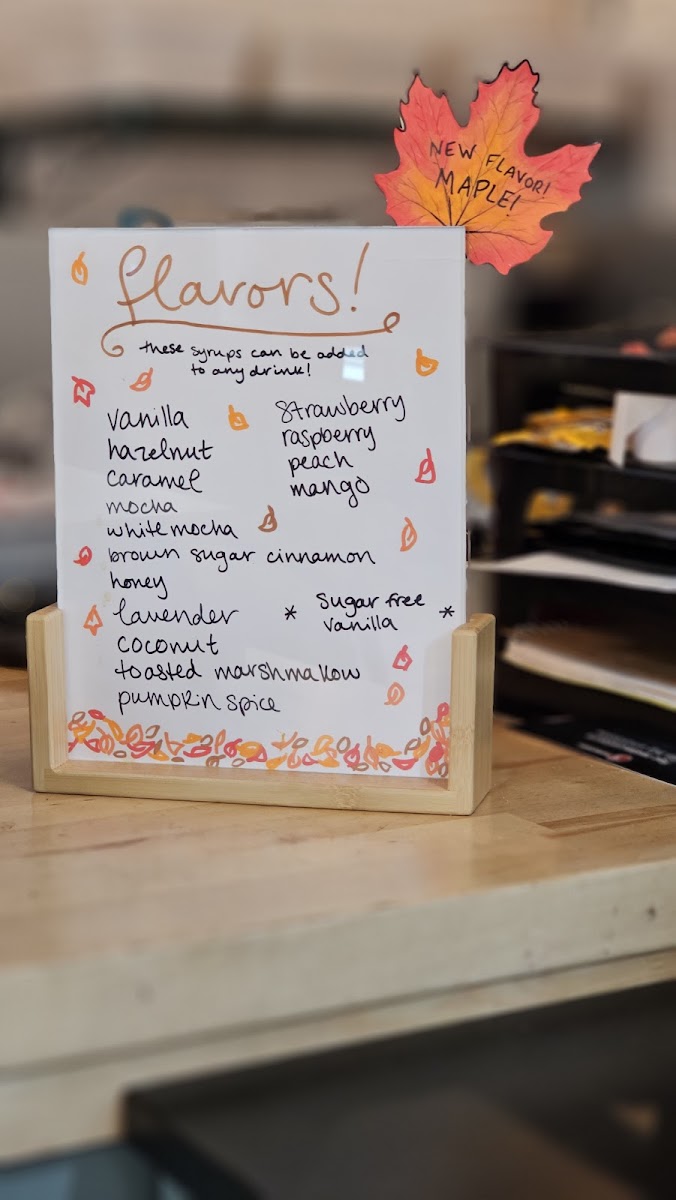 NEW FLAVOR!
MAPLE!
flavors!
these syrups can be added
to any drink!
vanilla
hazelnut
caramel
mocha
white mocha
brown sugar cinnamon
honey
lavender
coconut
toasted marshmallow
pumpkin spice
strawberry
raspberry
peach
mango
* Sugar free *
vanilla